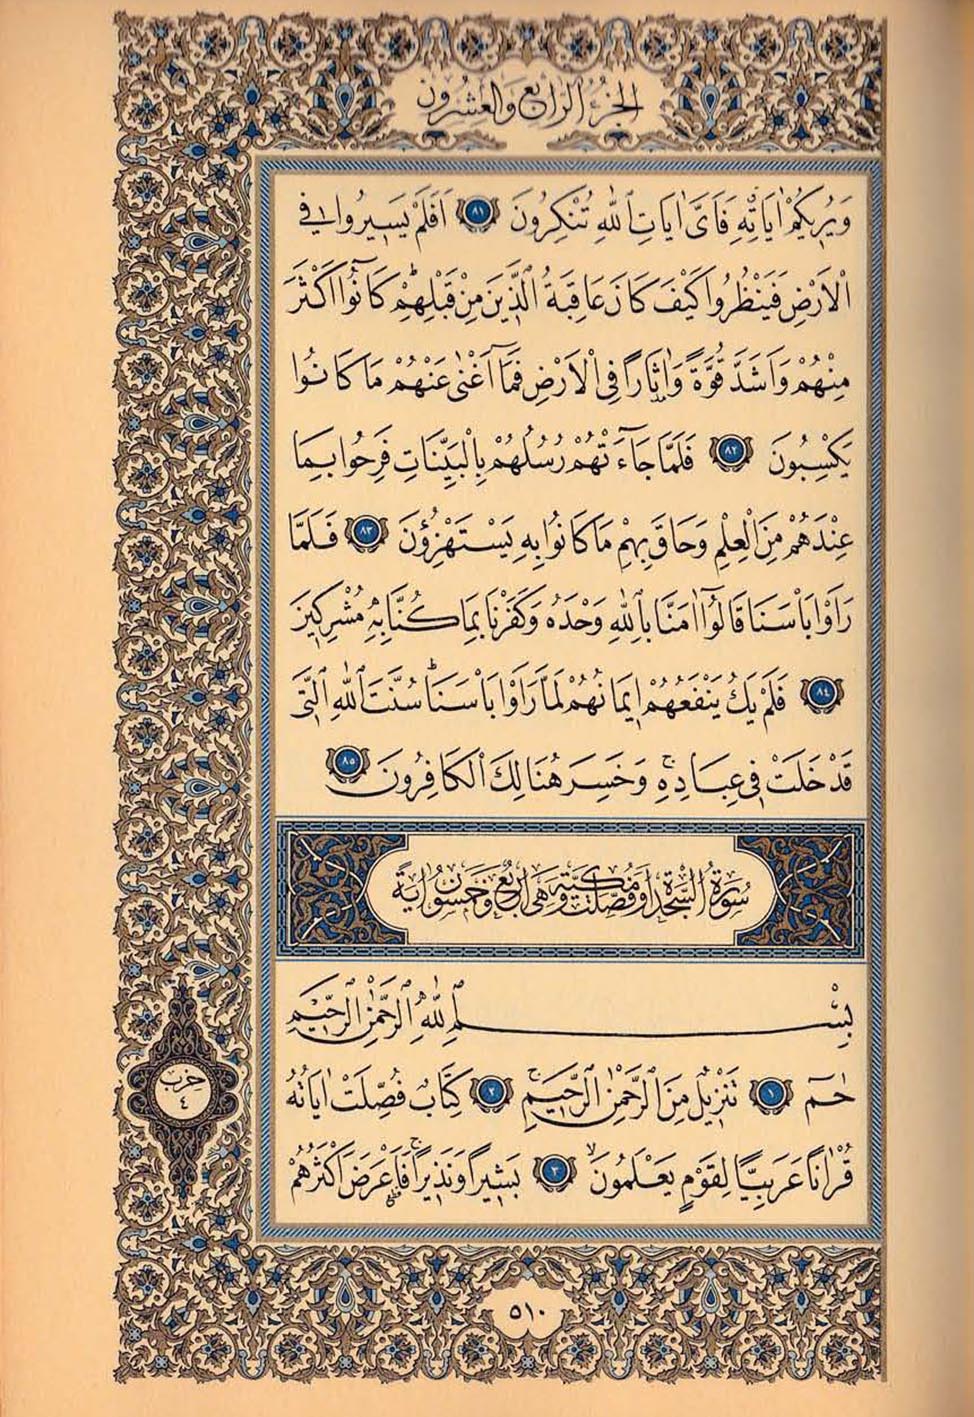 الجزء الرابع والعشرون
وَيُرِيكُمْ اٰيَاتِه۪ۗ فَاَىَّ اٰيَاتِ اللّٰهِ تُنْكِرُونَ ﴿٨١﴾ اَفَلَمْ يَسِيرُوا فِي
الْاَرْضِ فَيَنْظُرُوا كَيْفَ كَانَ عَاقِبَةُ الَّذِينَ مِنْ قَبْلِهِمْۜ كَانُٓوا اَكْثَرَ
مِنْهُمْ وَاَشَدَّ قُوَّةً وَاٰثَارًا فِي الْاَرْضِ فَمَٓا اَغْنٰى عَنْهُمْ مَا كَانُوا
يَكْسِبُونَ ﴿٨٢﴾ فَلَمَّا جَٓاءَتْهُمْ رُسُلُهُمْ بِالْبَيِّنَاتِ فَرِحُوا بِمَا
عِنْدَهُمْ مِنَ الْعِلْمِ وَحَاقَ بِهِمْ مَا كَانُوا بِهِ يَسْتَهْزِؤُنَ ﴿٨٣﴾ فَلَمَّا
رَاَوْا بَاْسَنَا قَالُٓوا اٰمَنَّا بِاللّٰهِ وَحْدَهُ وَكَفَرْنَا بِمَا كُنَّا بِه۪ مُشْرِكِينَ
﴿٨٤﴾ فَلَمْ يَكُ يَنْفَعُهُمْ اِيمَانُهُمْ لَمَّا رَاَوْا بَاْسَنَاۜ سُنَّتَ اللّٰهِ الَّتِي
قَدْ خَلَتْ فِي عِبَادِهِۚ وَخَسِرَ هُنَالِكَ الْكَافِرُونَ ﴿٨٥﴾
سُورَةُ السَّجْدَةِ اَوْ فُصِّلَتْ مَكِّيَّةٌ وَهِيَ اَرْبَعٌ وَخَمْسُونَ اٰيَةً
بِسْمِ اللّٰهِ الرَّحْمٰنِ الرَّحِيمِ
حٰمٓ ﴿١﴾ تَنْزِيلٌ مِنَ الرَّحْمٰنِ الرَّحِيمِۚ ﴿٢﴾ كِتَابٌ فُصِّلَتْ اٰيَاتُهُ
قُرْاٰنًا عَرَبِيًّا لِقَوْمٍ يَعْلَمُونَۙ ﴿٣﴾ بَشِيرًا وَنَذِيرًاۚ فَاَعْرَضَ اَكْثَرُهُمْ
حزب
٤
٥١٠